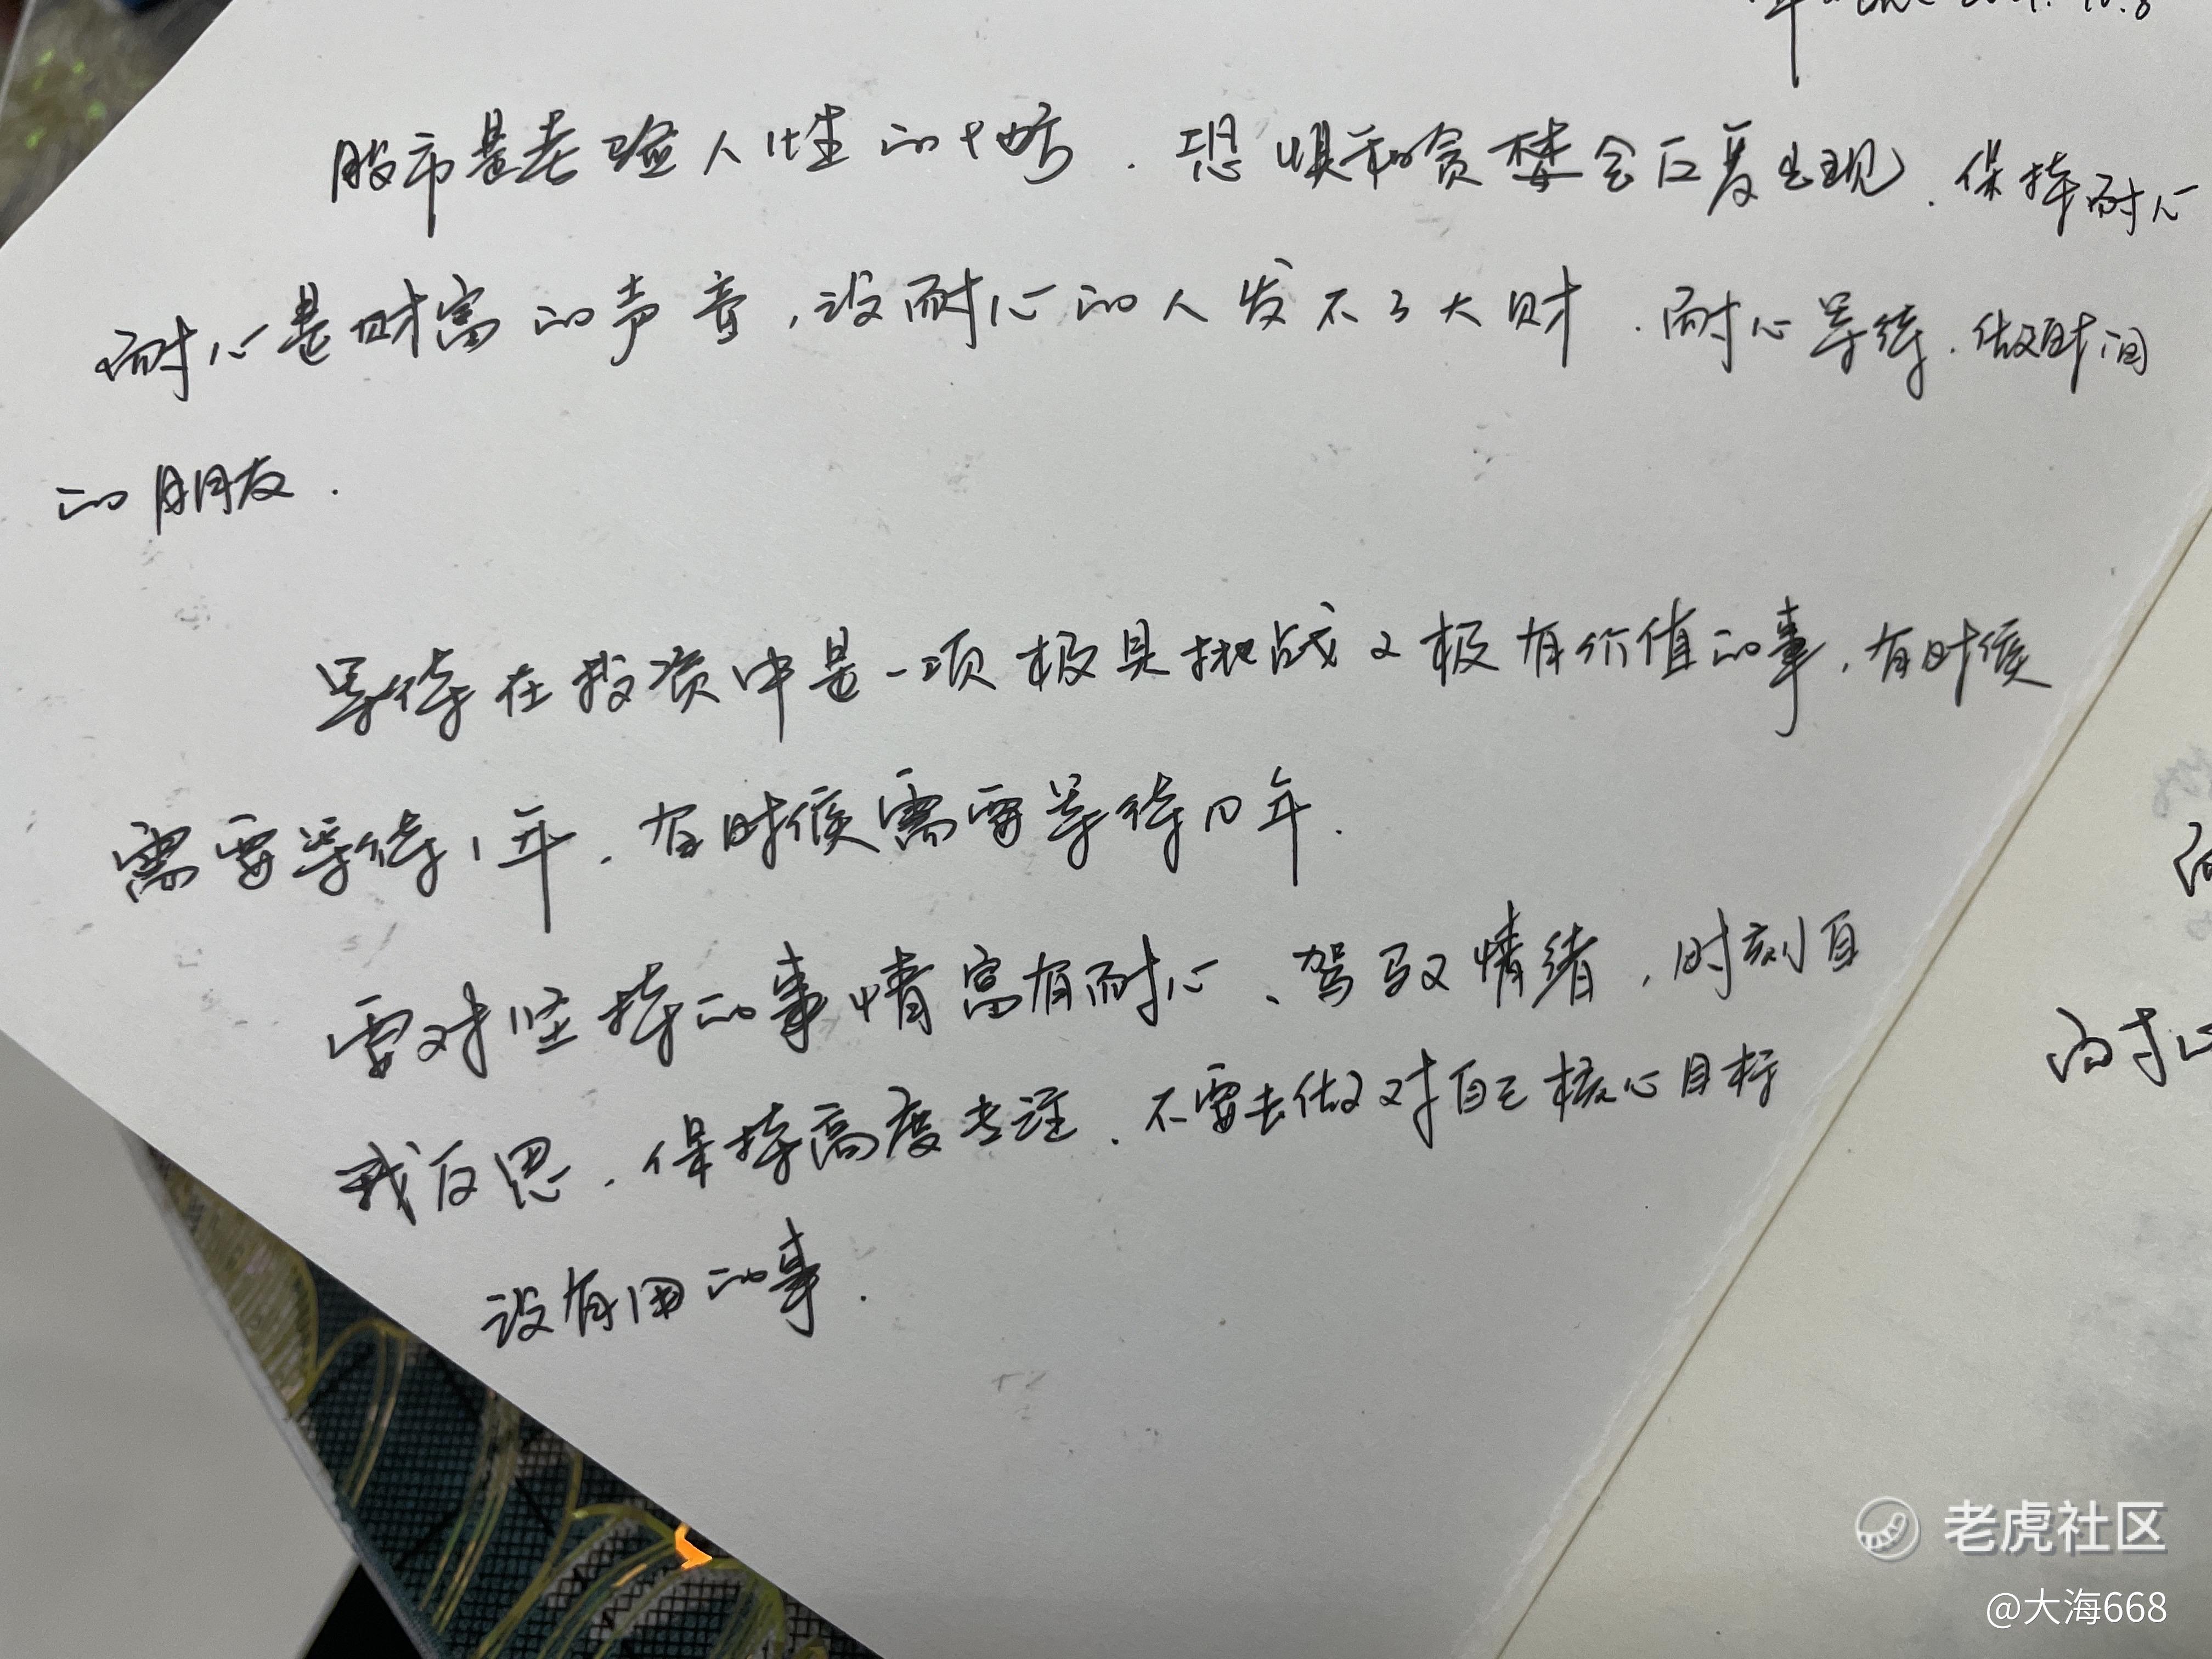 2021.10.8
股市是考验人性的地方.恐惧和贪婪会反复出现.保持耐心
耐心是财富的声音,没耐心的人发不了大财.耐心等待.做时间
的朋友.
等待在投资中是一项极具挑战又极有价值的事,有时候
需要等待1年.有时候需要等待几年.
要对坚持的事情富有耐心、驾驭情绪,时刻自
我反思.保持高度专注.不要去做对自己核心目标
没有用的事.
耐心
老虎社区
@大海668